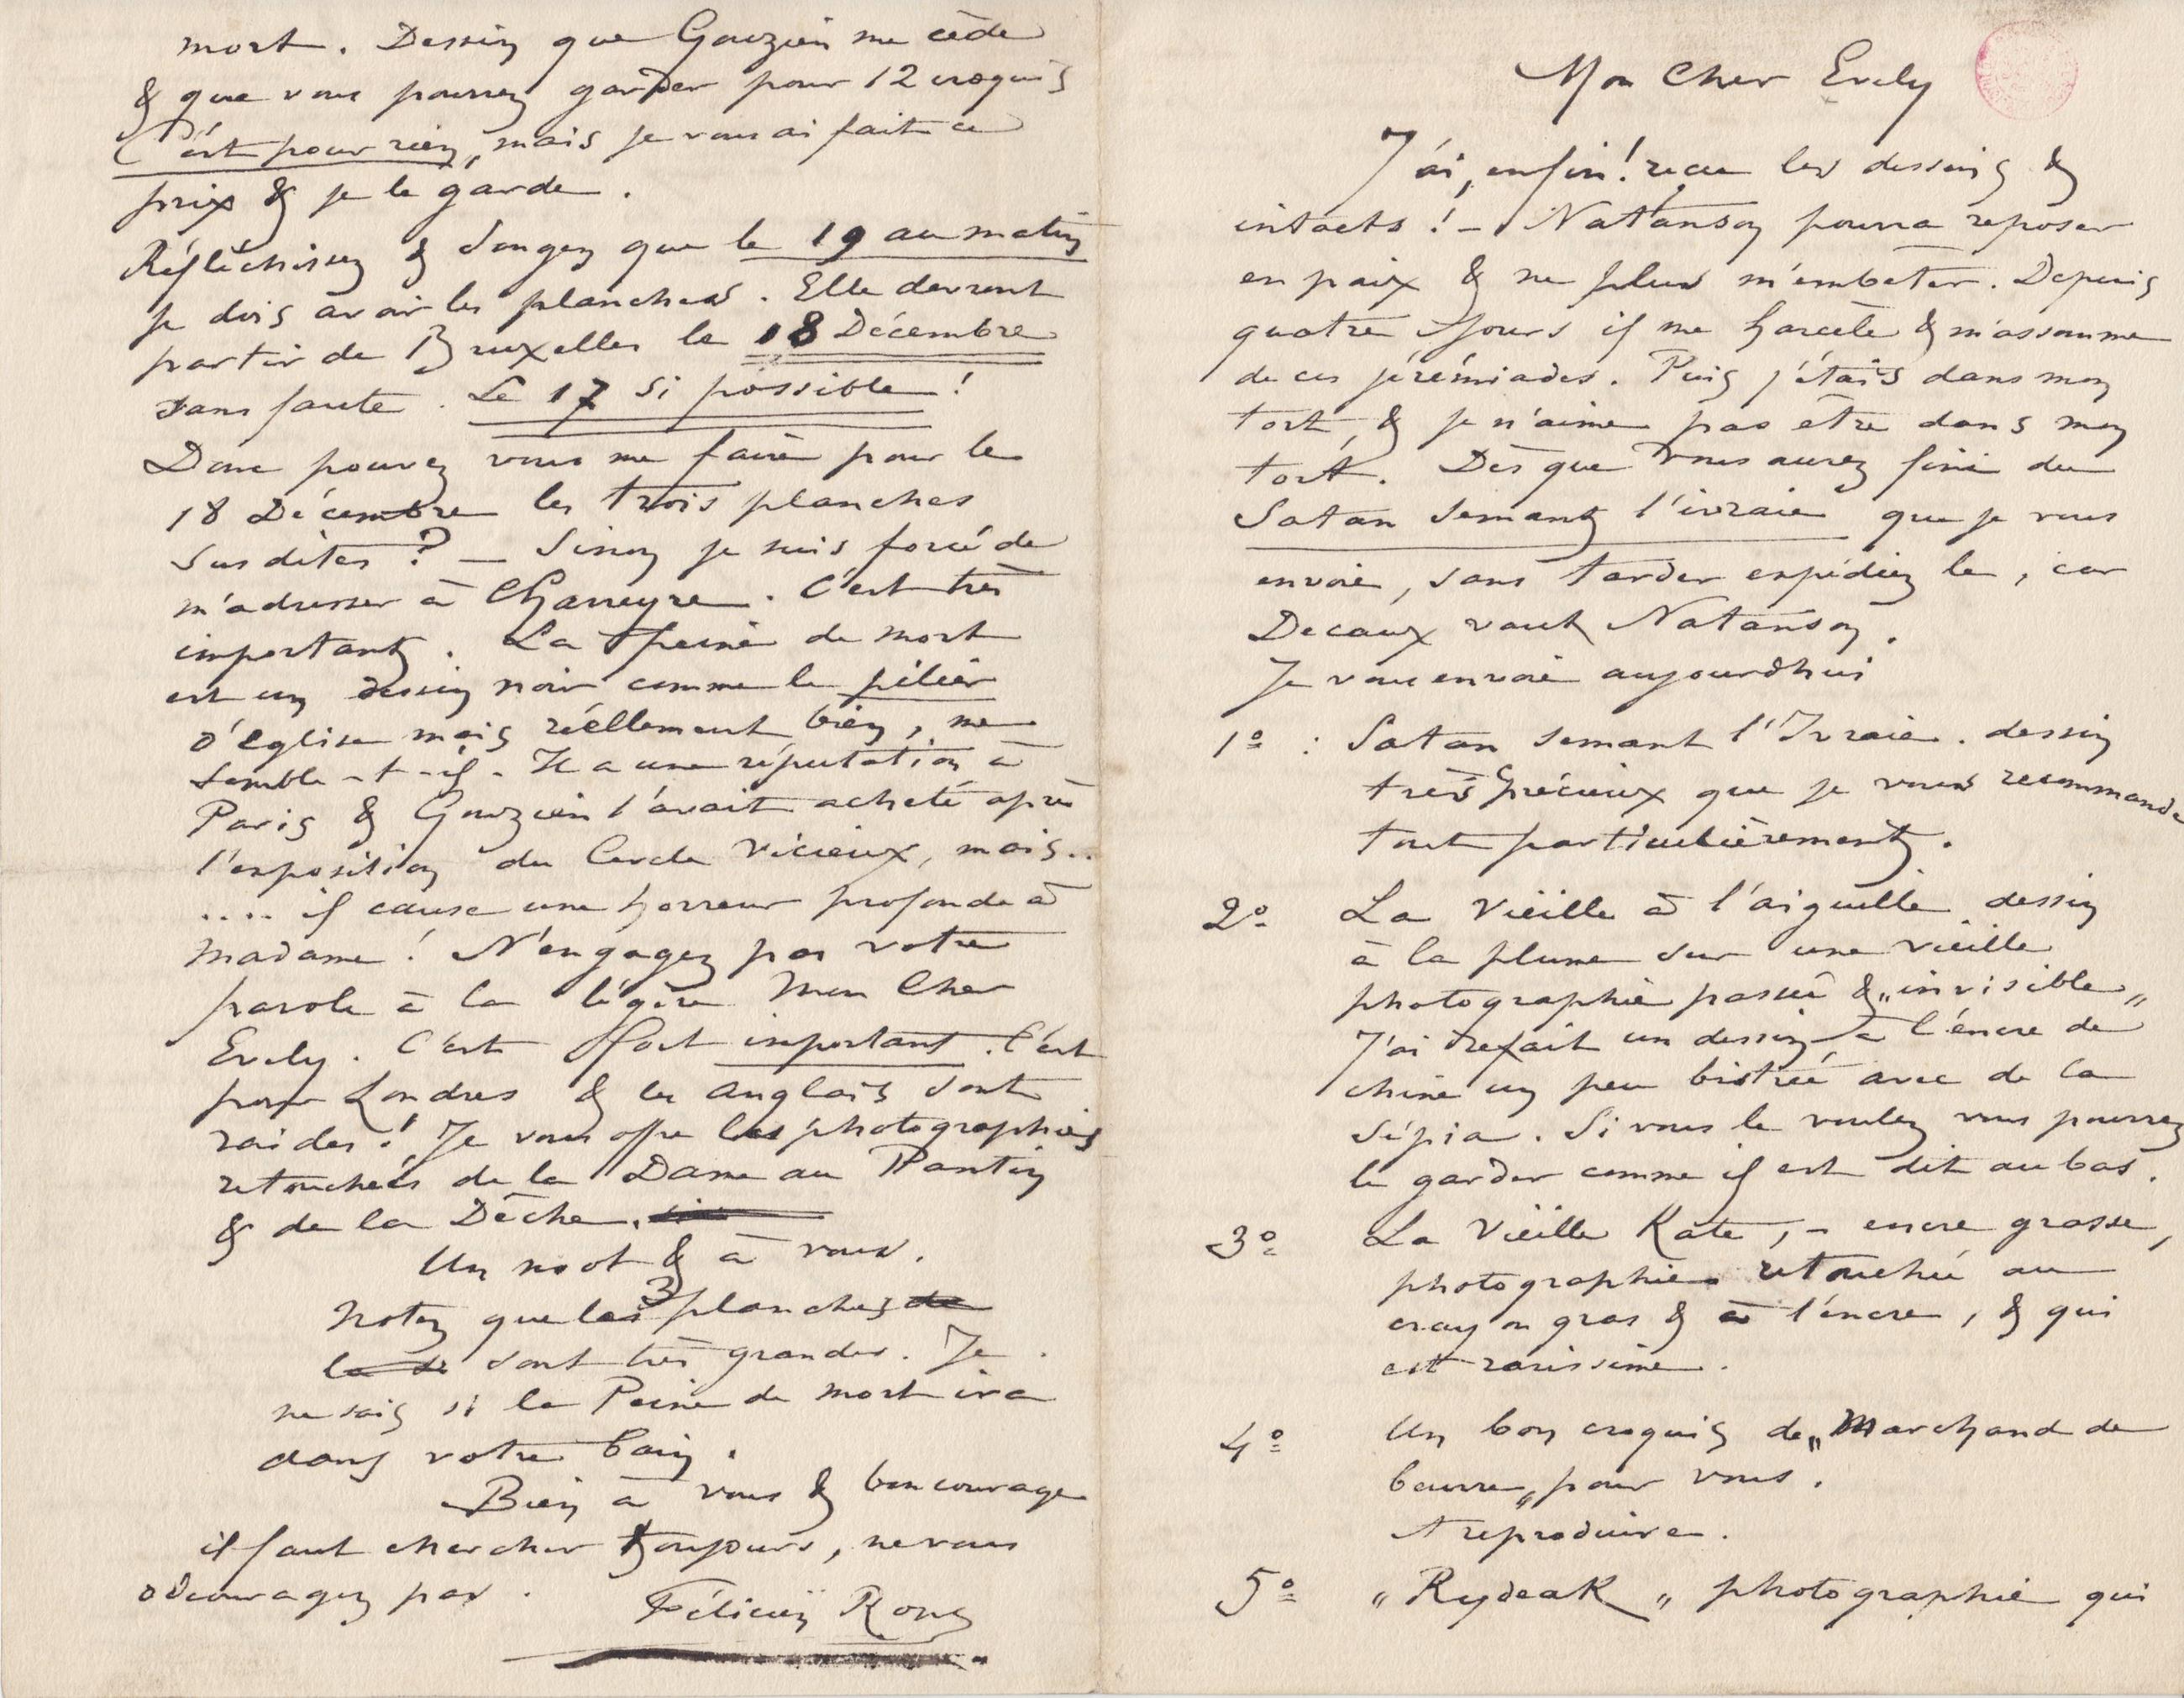 Mon Cher Evely
J'ai, enfin! reçu les dessins &
intacts ! – Natanson pourra reposer
en paix & ne plus m'embêter. Depuis
quatre jours il me harcèle & m'assomme
de ces jérémiades. Puis j'étais dans mon
tort, & je n'aime pas être dans mon
tort. Dès que vous aurez fini du
Satan semant l'ivraie que je vous
envoie, sans tarder expédiez le, car
Decaux vaut Natanson.
Je vous envoie aujourdhui
1º : Satan semant l'Ivraie. dessin
très précieux que je vous recommande
tout particulièrement.
2º La Vieille à l'aiguille dessin
à la plume sur une vieille
photographie passée & „invisible„
J'ai refait un dessin à l'encre de
chine un peu bistrée avec de la
sépia. Si vous le voulez vous pourrez
le garder comme il est dit au bas.
3º La Vieille Kate, – encre grasse,
photographie retouchée au
crayon gras & à l'encre, & qui
est rarissime.
4º Un bon croquis de „Marchand de
beurre„ pour vous.
A reproduire.
5º „Rydeak„ photographie qui
mort. Dessin que Gouzien me cède
& que vous pourrez garder pour 12 croquis
C'est pour rien, mais je vous ai fait ce
prix & je le garde.
Réfléchissez & Songez que le 19 au matin
je dois avoir les planches. Elle devront
partir de Bruxelles le 18 Décembre
sans faute. Le 17 si possible !
Donc pouvez vous me faire pour le
18 Décembre les trois planches
susdites ? – Sinon je suis forcé de
m'adresser à Charreyre. C'est très
important. La Peine de mort
est un dessin noir comme le pilier
d'église mais réellement bien, me
semble-t-il. Il a une réputation à
Paris & Gouzien l'avait acheté après
l'exposition du Cercle Vicieux, mais..
.... il cause une horreur profonde à
madame ! N'engagez pas votre
parole à la légère Mon Cher
Evely. C'est fort important. C'est
pour Londres & les anglais sont
raides ! Je vous offre les photographies
retouchées de la Dame au Pantin
& de la Dèche.
Un mot & à vous.
Notez que les 3 planches de
la de sont très grandes. Je
ne sais si la Peine de mort ira
dans votre bain.
Bien à vous & bon courage
il faut chercher toujours, ne vous
découragez pas.
Félicien Rops